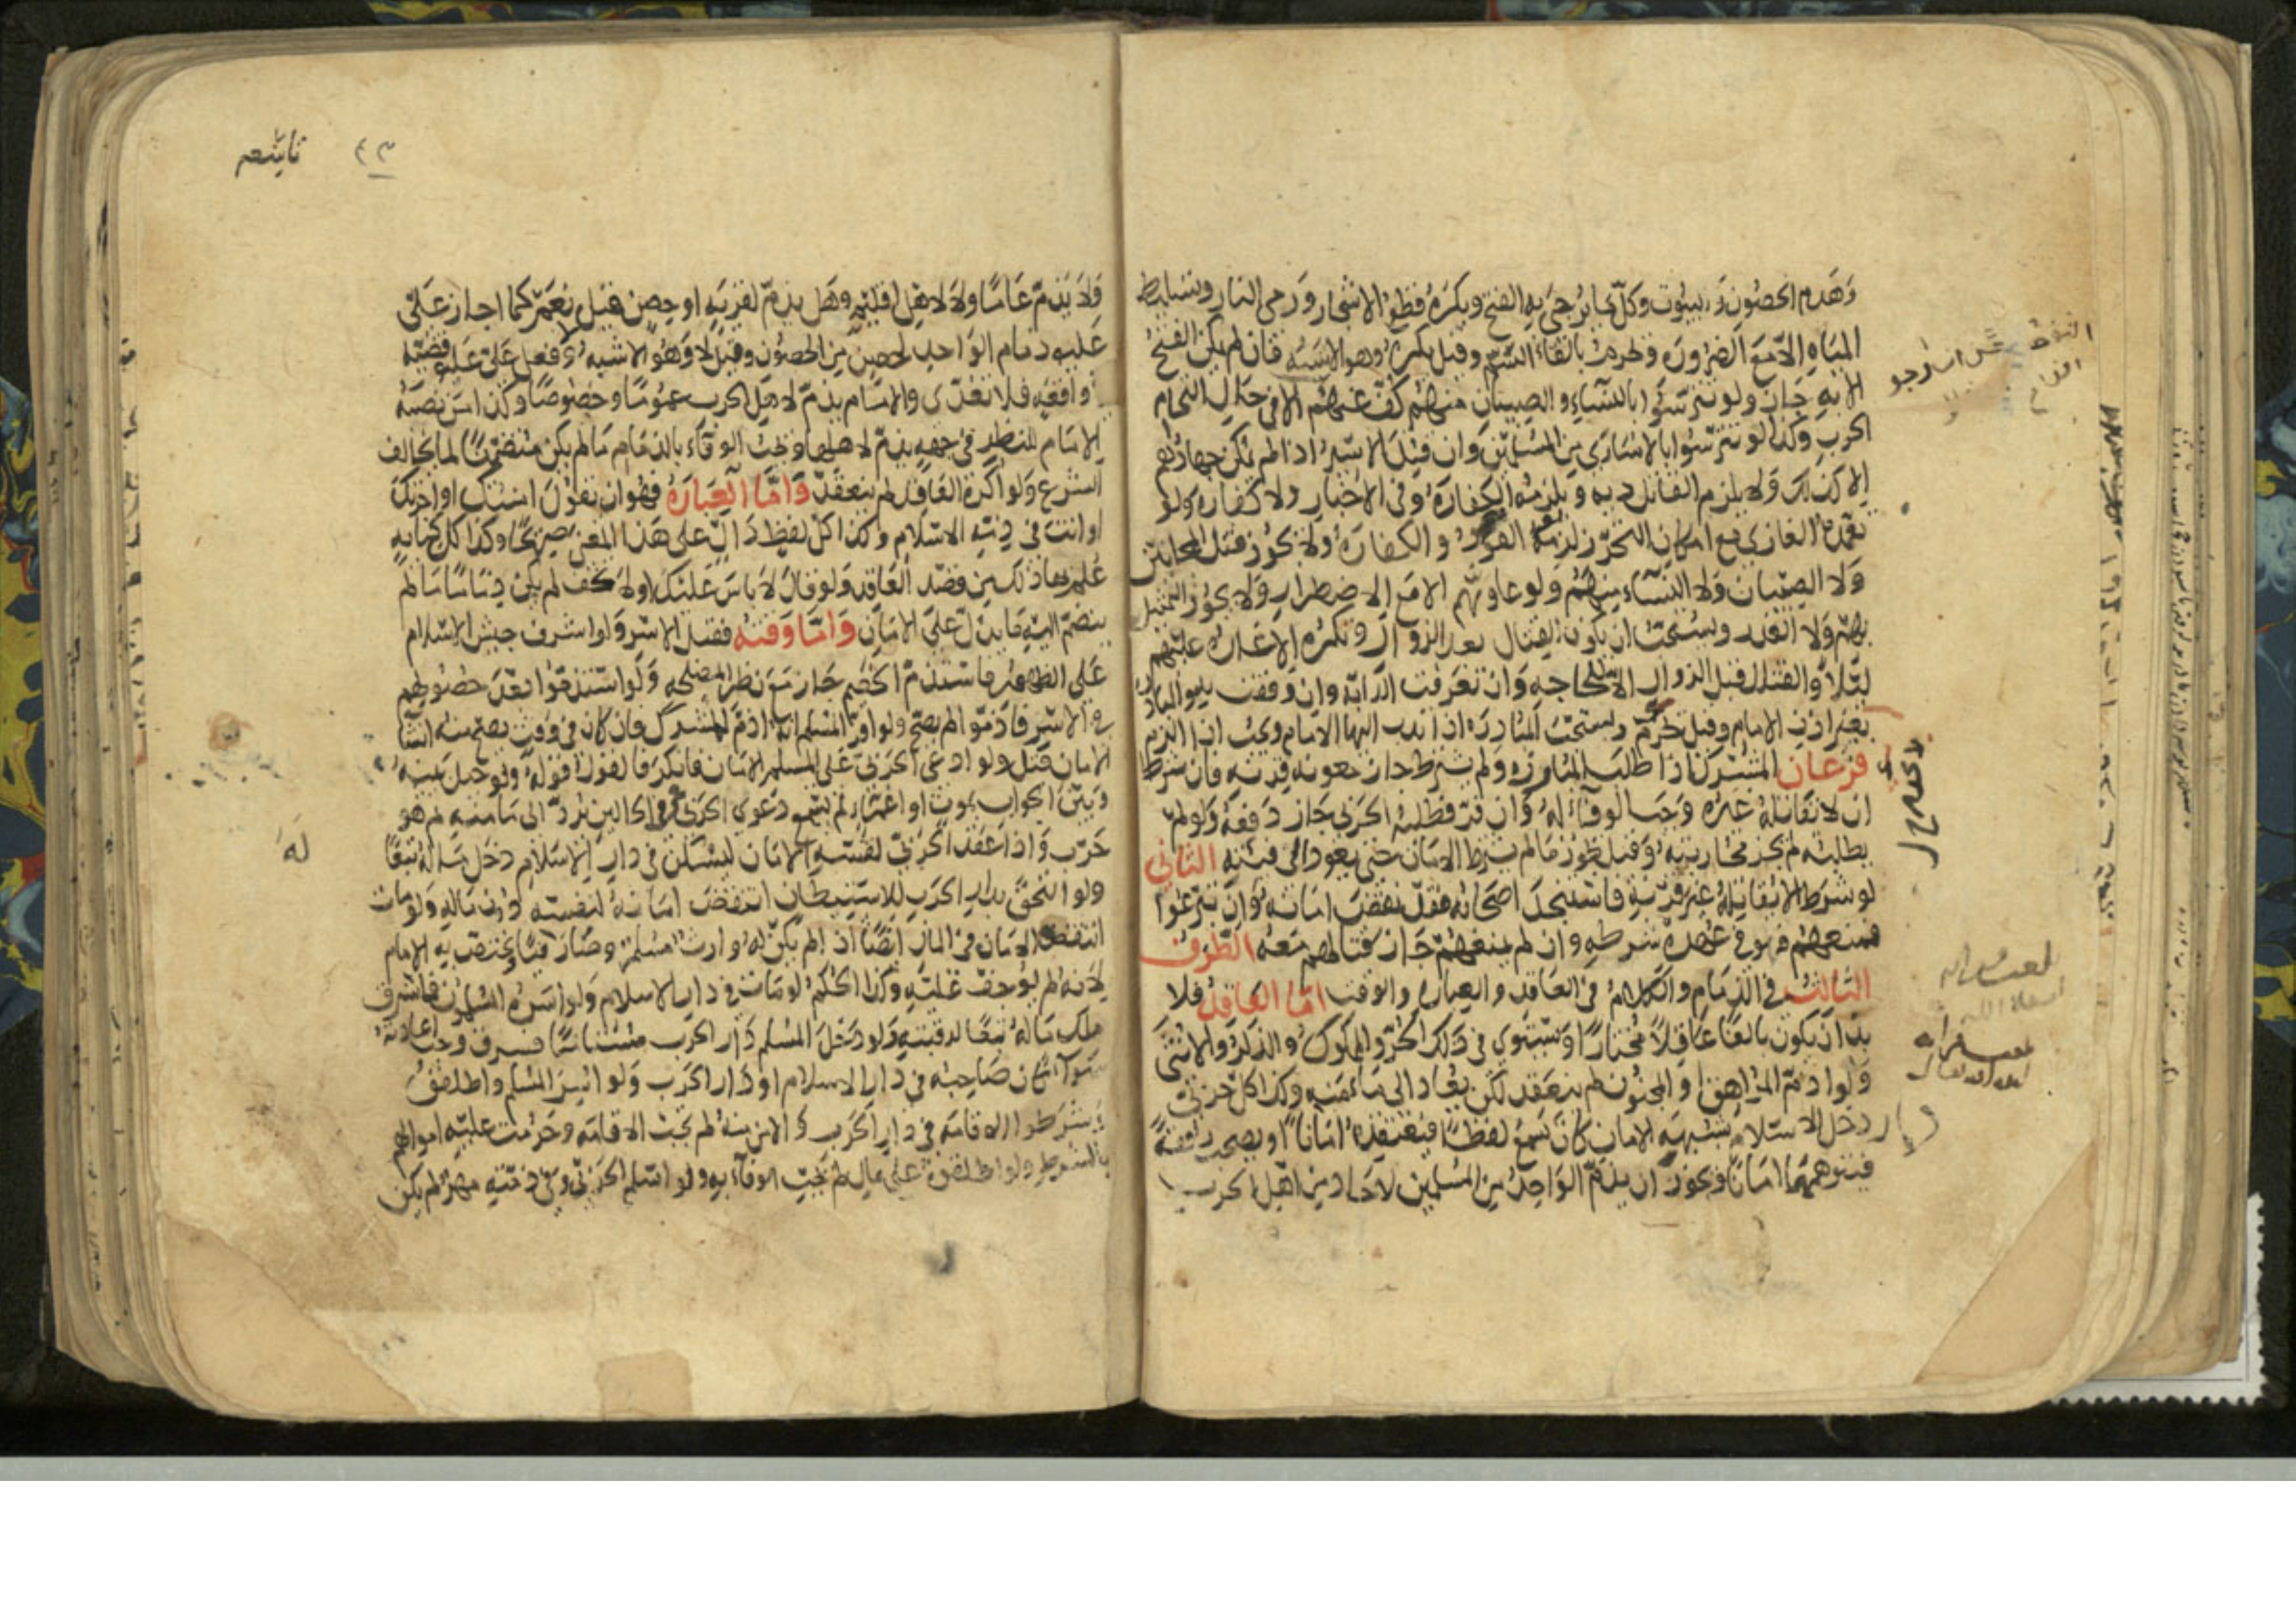 وهدم الحصون والبيوت وكل ما يرجى به الفتح ويكره قطع الاشجار ورمي النار وتسليط
المياه الا مع الضرورة ويحرم بالقاء السم وقيل يكره وهو الاشبه فان لم يمكن الفتح
الا به جاز ولو تترسوا بالنساء والصبيان منهم كف عنهم الا في حال التحام
الحرب وكذا لو تترسوا بالاسارى من المسلمين وان قتل الاسير اذا لم يمكن جهادهم
الا كذلك ولا يلزم القاتل دية ويلزمه الكفارة وفي الاخبار ولا كفارة ولو
تعمده الغازي مع امكان التحرز لزمه القود والكفارة ولا يجوز قتل المجانين
ولا الصبيان ولا النساء منهم ولو عاونهم الا مع الاضطرار ولا يجوز التمثيل
بهم ولا الغدر ويستحب ان يكون القتال بعد الزوال وتكره الاغارة عليهم
ليلا والقتال قبل الزوال الا لحاجة وان تعرقب الدابة وان وقفت به والمبارزة
بغير اذن الامام وقيل تحرم وتستحب المبارزة اذا ندب اليها الامام وتجب اذا الزم
فرعان المشرك اذا طلب المبارزة ولم يشترط جاز معونة قرنه فان شرط
ان لا يقاتله غيره وجب الوفاء له وان فر فطلبه الحربي جاز دفعه ولو لم
يطلبه لم يجز محاربته وقيل يجوز ما لم يشترط الامان حتى يعود الى فئته الثاني
لو شرط الا يقاتله غير قرنه فاستنجد اصحابه فقد نقض امانه وان تبرعوا
فمنعهم فهو في عهدة شرطه وان لم يمنعهم جاز قتالهم معه الطرف
الثالث في الذمام والكلام في العاقد والعبارة والوقت اما العاقد فلا
بد ان يكون بالغا عاقلا مختارا ويستوي في ذلك الحر والمملوك والذكر والانثى
ولو اذم المراهق او المجنون لم ينعقد لكن يعاد الى مأمنه وكذا كل حربي
دخل دار الاسلام بشبهة الامان كان يسمع لفظا فيعتقده امانا او يصحب رفقة
فيتوهمها امانا ويجوز ان يذم الواحد من المسلمين لاحاد من اهل الحرب
٤٣ تاشعر
ولا يذم عاما ولا لاهل اقليم وهل يذم لقرية او حصن قيل نعم كما اجاز علي
عليه ذمام الواحد لحصن من الحصون وقيل لا وهو الاشبه وفعل علي قضية
في واقعة فلا تتعدى والامام يذم لاهل الحرب عموما وخصوصا وكذا من نصبه
الامام للنظر في جهة يذم لاهلها ويجب الوفاء بالذمام ما لم يكن متضمنا لما يخالف
الشرع ولو اكره العاقد لم ينعقد واما العبارة فهو ان تقول امنتك او اجرتك
او انت في ذمة الاسلام وكذا كل لفظ دال على هذا المعنى صريحا وكذا كل كناية
علم بها ذلك من قصد العاقد ولو قال لا باس عليك او لا تخف لم يكن ذماما ما لم
ينضم اليه ما يدل على الامان واما وقته فقبل الاسر ولو اشرف جيش الاسلام
على الظهور فاستذم الخصم جاز مع نظر المصلحة ولو استذموا بعد حصولهم
في الاسر فاذموا لم يصح ولو اقر المسلم انه اذم لمشرك فان كان في وقت يصح منه انشاء
الامان قبل ولو ادعى الحربي على المسلم الامان فانكر فالقول قوله ولو حيل بينه
وبين الجواب بموت او اغماء لم تسمع دعوى الحربي وفي الحالين يرد الى مامنه ثم هو
حرب واذا عقد الحربي لنفسه الامان ليسكن في دار الاسلام دخل ماله تبعا
له
ولو التحق بدار الحرب للاستيطان انتقض امانه لنفسه دون ماله ولو مات
انتقض الامان في المال ايضا اذا لم يكن له وارث مسلم وصار فيئا يختص به الامام
لانه لم يوجف عليه وكذا الحكم لو مات في دار الاسلام ولو اسره المسلمون فاسترق
ملك ماله تبعا لرقبته ولو دخل المسلم دار الحرب مستامنا فسرق وجب اعادته
سواء كان صاحبه في دار الاسلام او دار الحرب ولو اسر المسلم واطلقوه
وشرطوا الاقامة في دار الحرب والامن منه لم تجب الاقامة وحرمت عليه اموالهم
بالشرط ولو اطلقوه على مال لم يجب الوفاء به ولو اسلم الحربي وفي ذمته مهر لم يكن